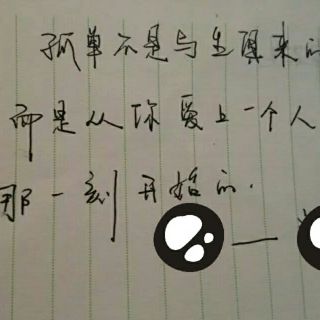 孤单不是与生俱来的
而是从你爱上一个人
那一刻开始的.